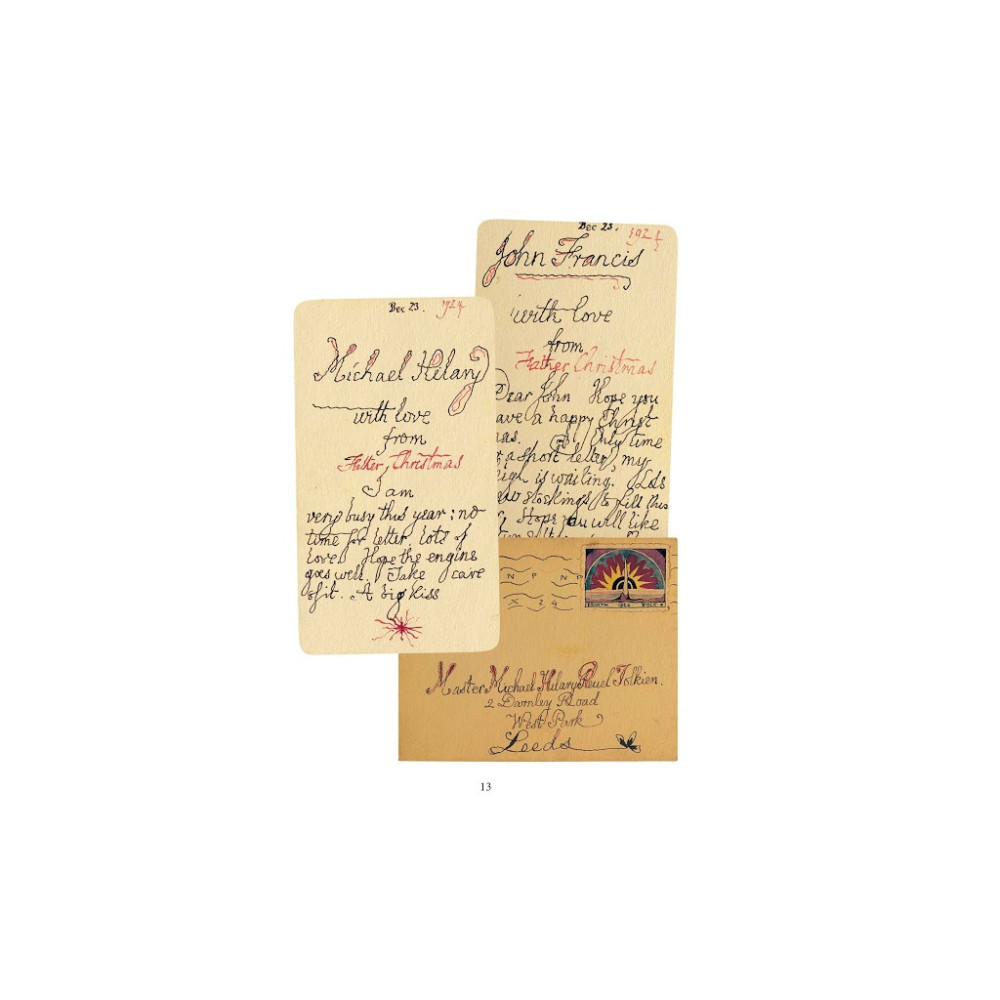 Dec 23. 1924
Michael Hilary
with love
from
Father Christmas
I am
very busy this year: no
time for letter. Lots of
love. Hope the engine
goes well. Take care
of it. A big kiss
Dec 23. 1924
John Francis
with love
from
Father Christmas
Dear John Hope you
ave a happy Christ
mas. Only time
a short letter, my
is waiting. Lots
stockings to fill this
Hope you will like
N P N P
X 24
NORTH 1924 POLE
Master Michael Hilary Reuel Tolkien.
2 Darnley Road
West Park
Leeds
13